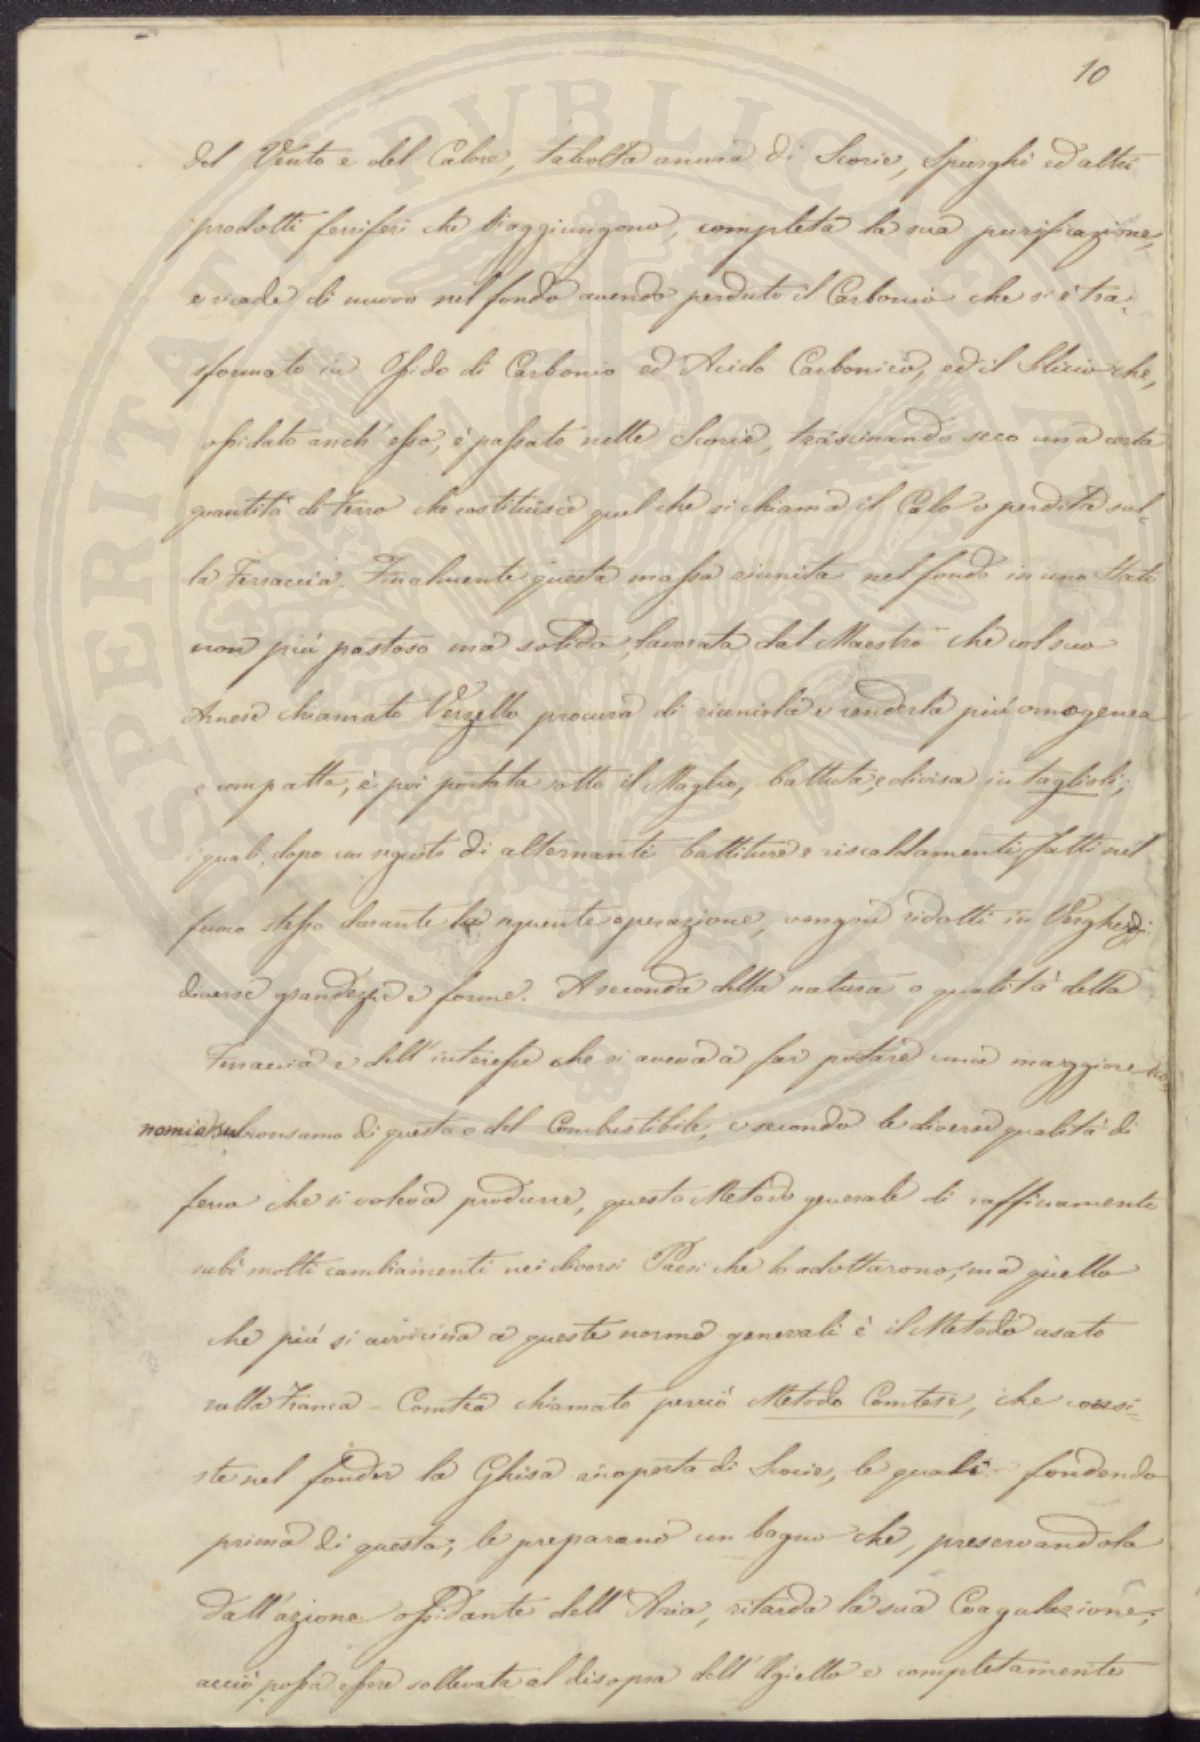 10
del Vento e del Calore, talvolta ancora di Scorie, Spurghi ed altri
prodotti ferriferi che vi aggiungono, completa la sua purificazione,
e ricade di nuovo nel fondo avendo perduto il Carbonio che si è tra-
sformato in Ossido di Carbonio ed Acido Carbonico, ed il Silicio che,
ossidato anch'esso, è passato nelle Scorie, trascinando seco una certa
quantità di Ferro che costituisce quel che si chiama il Calo o perdita sul-
la Ferraccia. Finalmente questa massa riunita nel fondo in uno Stato
non più pastoso ma solido, lavorata dal Maestro che col suo
Arnese chiamato Verzello procura di riunirla e renderla più omogenea
e compatta, è poi portata sotto il Maglio, battuta, e divisa in taglioli;
i quali, dopo un seguito di alternanti battiture e riscaldamenti, fatti nel
fuoco stesso durante la seguente operazione, vengono ridotti in Verghe di
diverse grandezze e forme. A seconda della natura o qualità della
Ferraccia e dell'interesse che si aveva a far portare una maggiore eco-
nomia sul consumo di questa o del Combustibile, e secondo le diverse qualità di
ferro che si voleva produrre, questo Metodo generale di raffinamento
subì molti cambiamenti nei diversi Paesi che lo adottarono; ma quello
che più si avvicina a queste norme generali è il Metodo usato
nella Franca-Contea chiamato perciò Metodo Comtese, che consi-
ste nel fonder la Ghisa ricoperta di Scorie, le quali fondendo
prima di questa, le preparano un bagno che, preservandola
dall'azione ossidante dell'Aria, ritarda la sua Coagulazione;
acciò possa essere sollevata al disopra dell'Ugiello e completamente